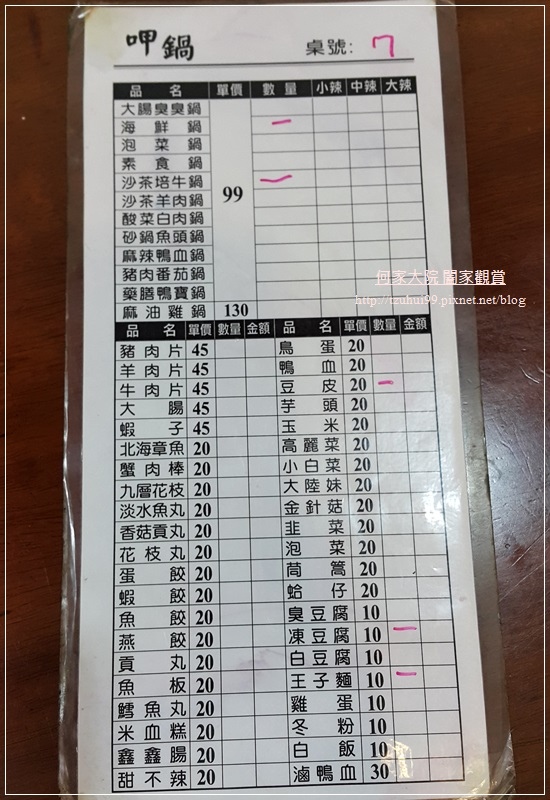 呷鍋 桌號: 7
品名 單價 數量 小辣 中辣 大辣
大腸臭臭鍋
海鮮鍋 一
泡菜鍋
素食鍋
沙茶培牛鍋 99 一
沙茶羊肉鍋
酸菜白肉鍋
砂鍋魚頭鍋
麻辣鴨血鍋
豬肉番茄鍋
藥膳鴨寶鍋
麻油雞鍋 130
何家大院 闔家觀賞
http://tzuhui99.pixnet.net/blog
品名 單價 數量 金額 品名 單價 數量 金額
豬肉片 45 鳥蛋 20
羊肉片 45 鴨血 20
牛肉片 45 豆皮 20 一
大腸 45 芋頭 20
蝦子 45 玉米 20
北海章魚 20 高麗菜 20
蟹肉棒 20 小白菜 20
九層花枝 20 大陸妹 20
淡水魚丸 20 金針菇 20
香菇貢丸 20 韭菜 20
花枝丸 20 泡菜 20
蛋餃 20 茼蒿 20
蝦餃 20 蛤仔 20
魚餃 20 臭豆腐 10
燕餃 20 凍豆腐 10 一
貢丸 20 白豆腐 10
魚板 20 王子麵 10 一
鱈魚丸 20 雞蛋 10
米血糕 20 冬粉 10
鑫鑫腸 20 白飯 10
甜不辣 20 滷鴨血 30